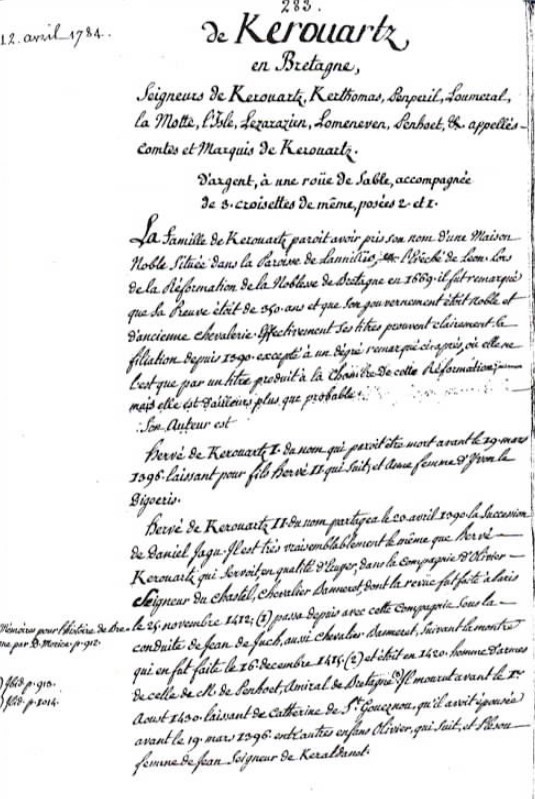 283.
12. avril 1784.
de Kerouartz,
en Bretagne,
Seigneurs de Kerouartz, Kerthomas, Penperil, Loumeral,
la Motte, l'Isle, Lezarazien, Lomeneven, Penhoet, &c. appellés
comtes et Marquis de Kerouartz.
D'argent, à une roüe de Sable, accompagnée
de 3. croisettes de même, posées 2. et 1.
La famille de Kerouartz paroit avoir pris son nom d'une Maison
Noble située dans la Paroisse de Lannilis, l'Evêché de Leon. Lors
de la Réformation de la Noblesse de Bretagne en 1669. il fut remarqué
que sa Preuve étoit de 350. ans et que son gouvernement étoit noble et
d'ancienne chevalerie. Effectivement ses titres prouvent clairement la
filiation depuis 1390. excepté à un dégré remarqué ci après, où elle ne
l'est que par un titre produit à la Chambre de cette Réformation,
mais elle est d'ailleurs plus que probable.
Son Auteur est
Hervé de Kerouartz I. du nom, qui paroit être mort avant le 19. mars
1396. laissant pour fils Hervé II. qui suit, et femme d'Yvon le
Digoeris.
Hervé de Kerouartz II. du nom partagea le 20. avril 1390. la Succession
de Daniel Jagu. Il est très vraisemblablement le même que Hervé
Kerouartz qui servoit en qualité d'Ecuyer, dans la Compagnie d'Olivier
Seigneur du Chastel, Chevalier Banneret, dont la revüe fut faite à Paris
le 25. novembre 1412; (1) passa depuis avec cette Compagnie sous la
conduite de Jean de Juch, aussi chevalier Banneret, suivant la montre
qui en fut faite le 16. decembre 1415. (2) et étoit en 1420. homme d'armes
de celle de M. de Penhoet, Amiral de Bretagne. Il mourut avant le 1er
Aoust 1430. laissant de Catherine de St. Goueznou, qu'il avoit épousée
avant le 19. mars 1396. entr'autres enfans Olivier, qui suit, et
femme de Jean Seigneur de Keraldanet.
Mémoires pour l'histoire de Bre-
ne par D. Morice. p. 912.
) Ibid. p. 913.
) Ibid. p. 1014.